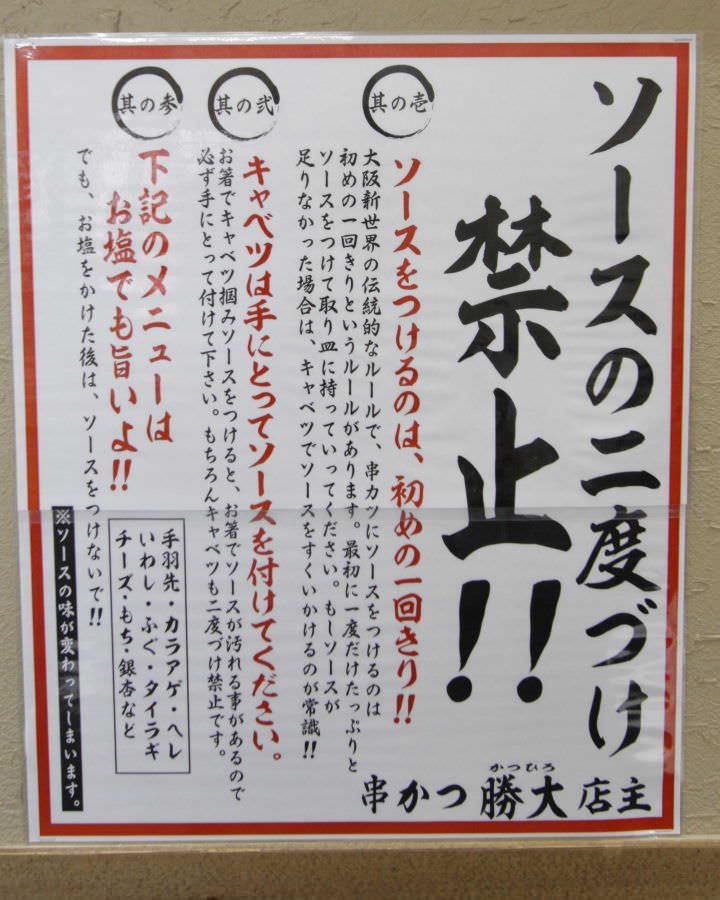 ソースの二度づけ
禁止!!
其の壱
ソースをつけるのは、初めの一回きり!!
大阪新世界の伝統的なルールで、串カツにソースをつけるのは
初めの一回きりというルールがあります。最初に一度だけたっぷりと
ソースをつけて取り皿に持っていってください。もしソースが
足りなかった場合は、キャベツでソースをすくいかけるのが常識!!
其の弐
キャベツは手にとってソースを付けてください。
お箸でキャベツ掴みソースをつけると、お箸でソースが汚れる事があるので
必ず手にとって付けて下さい。もちろんキャベツも二度づけ禁止です。
其の参
下記のメニューは
お塩でも旨いよ!!
でも、お塩をかけた後は、ソースをつけないで!!
手羽先・カラアゲ・ヘレ
いわし・ふぐ・タイラギ
チーズ・もち・銀杏など
※ソースの味が変わってしまいます。
かつひろ
串かつ 勝大 店主